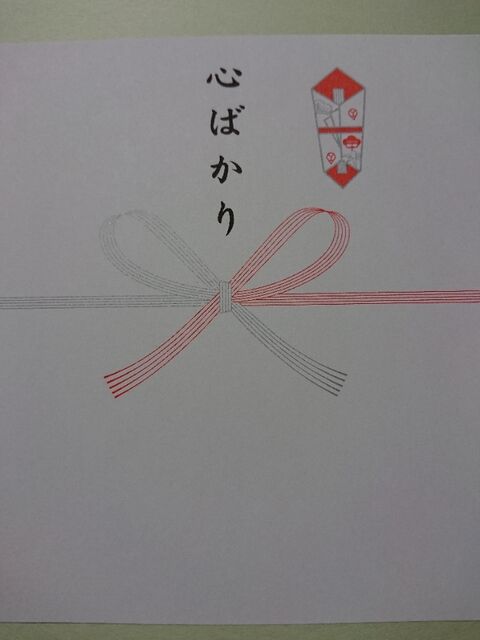 心ばかり